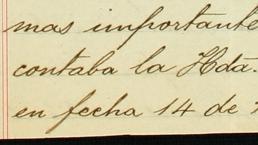 mas importante
contaba la Hda.
en fecha 14 de